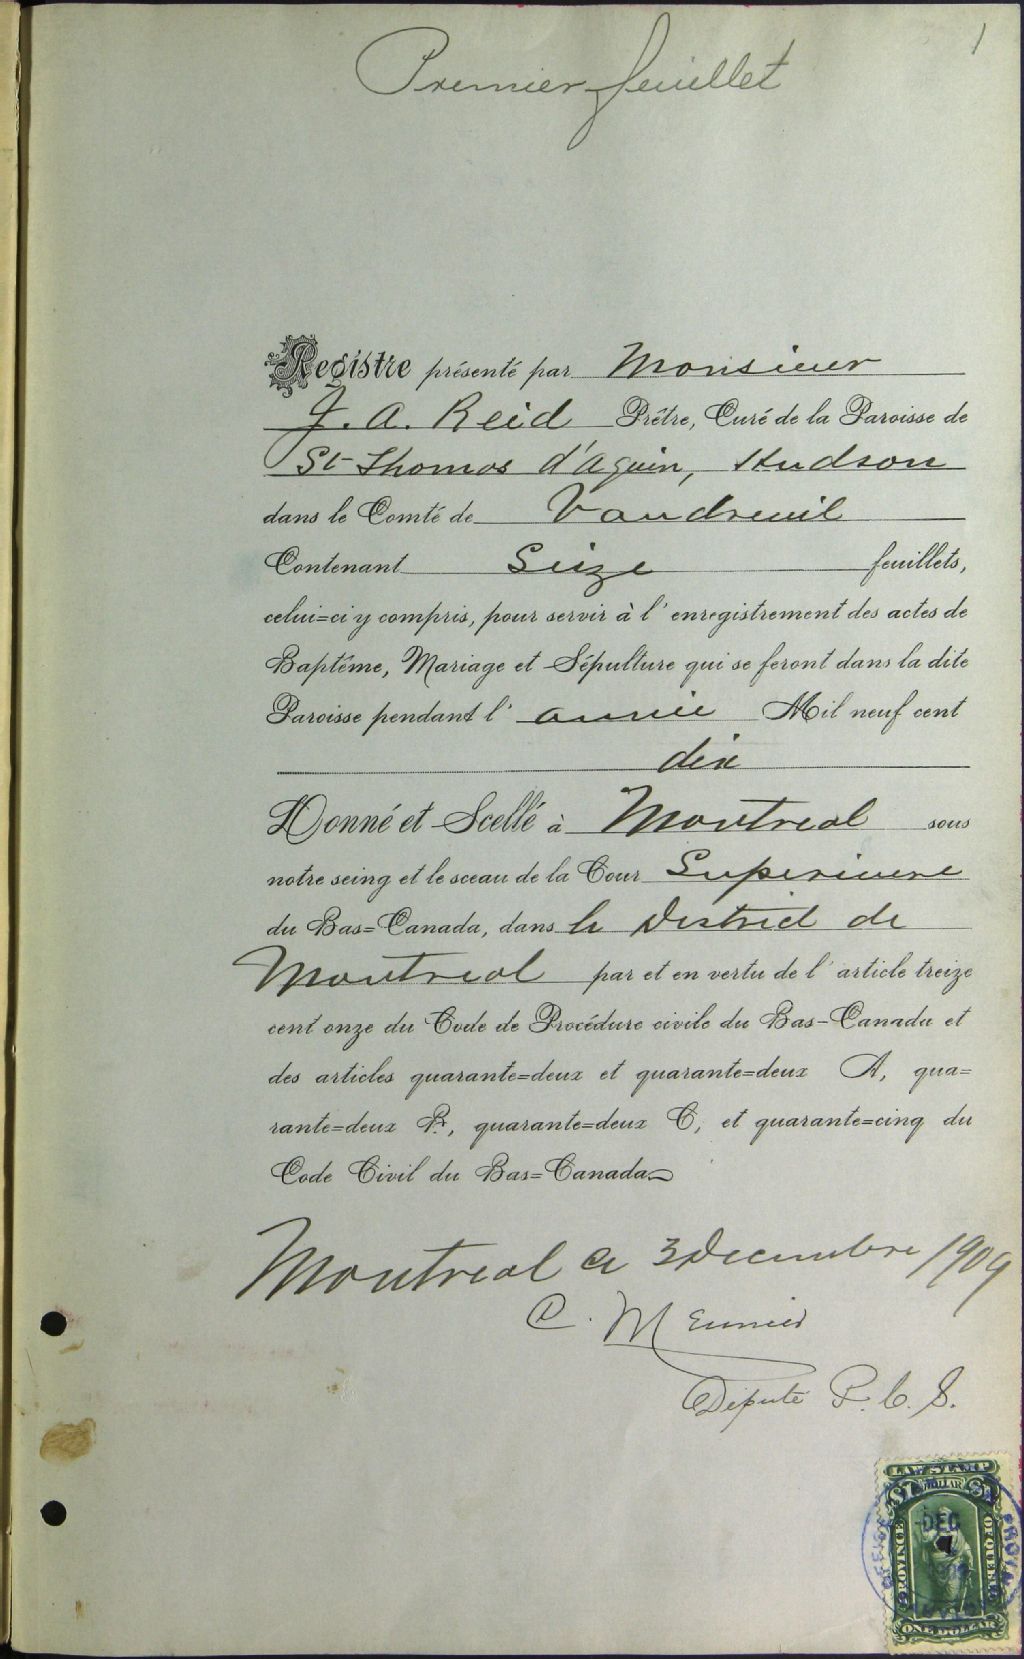 1
Premier feuillet
Registre présenté par Monsieur
J. A. Reid Prêtre, Curé de la Paroisse de
St-Thomas d'Aquin, Hudson
dans le Comté de Vaudreuil
Contenant Seize feuillets,
celui=ci y compris, pour servir à l'enregistrement des actes de
Baptême, Mariage et Sépulture qui se feront dans la dite
Paroisse pendant l'année Mil neuf cent
dix
Donné et Scellé à Montreal sous
notre seing et le sceau de la Cour Superieure
du Bas=Canada, dans le District de
Montreal par et en vertu de l'article treize
cent onze du Code de Procédure civile du Bas-Canada et
des articles quarante=deux et quarante=deux A, qua=
rante=deux B, quarante=deux C, et quarante=cinq du
Code Civil du Bas=Canada
Montreal ce 3 Decembre 1909
C. Meunier
Député P. C. S.
LAW STAMP
$1 DOLLAR $1
PROVINCE OF QUEBEC
DEC
ONE DOLLAR